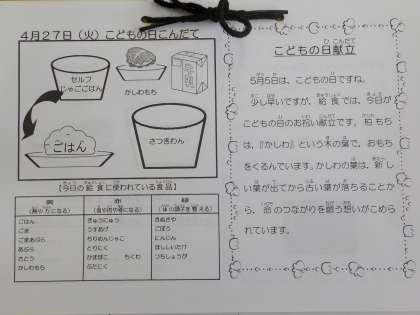 4月27日（火）こどもの日こんだて
セルフ
じゃこごはん
かしわもち
ごはん
さつきわん
【今日の給食に使われている食品】
黄
（熱や力になる）
赤
（血や肉や骨になる）
緑
（体の調子を整える）
ごはん
ぎゅうにゅう
きぬさや
ごま
うすあげ
ごぼう
ごまあぶら
ちりめんじゃこ
にんじん
あぶら
とりにく
ほししいたけ
さとう
かまぼこ　ちくわ
つちしょうが
かしわもち
ぶたにく
こどもの日献立
5月5日は、こどもの日ですね。
少し早いですが、給食では、今日が
こどもの日のお祝い献立です。柏もち
は、『かしわ』という木の葉で、おもち
をくるんでいます。かしわの葉は、新し
い葉が出てから古い葉が落ちることか
ら、命のつながりを願う想いがこめら
れています。